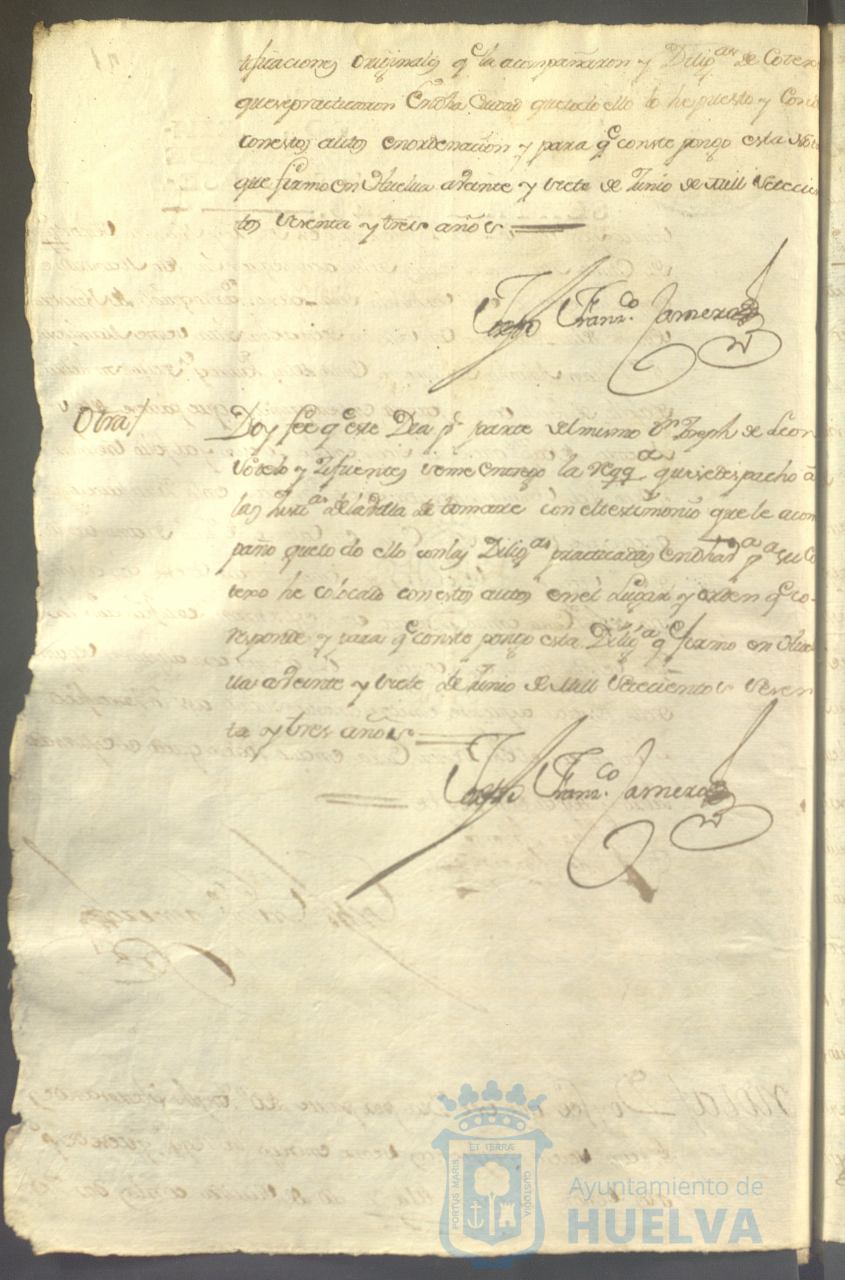 tificaciones originales q.e la acompañaron y Dilig.as de Cotexo
que se practicaron En dha Ciudad que todo ello lo he puesto y Con
con estos autos en ordenacion y para q.e conste pongo esta Nota
que firmo en Huelva a Veinte y siete de Junio de Mill setecien
tos sesenta y tres años
Joseph Franz.co Camero
Otra/
Doy fee q.e este Dia p.r parte del mismo D.n Joseph de Leon
Sotelo y Zifuentes se me entrego la reqq.a que se despacho a
las Just.as de la Villa de tomares con el testimonio que le acom
paño que todo ello con las Dilig.as practicadas en dha p.a su Co
texo he colocado con estos autos en el Lugar y orden q.e co-
responde y para q.e conste pongo esta Dilig.a q.e firmo en Huel
va a Veinte y siete de Junio de Mill setecientos sesen
ta y tres años
Joseph Franz.co Camero
ET TERRÆ
PORTUS MARIS
CUSTODIA
Ayuntamiento de
HUELVA